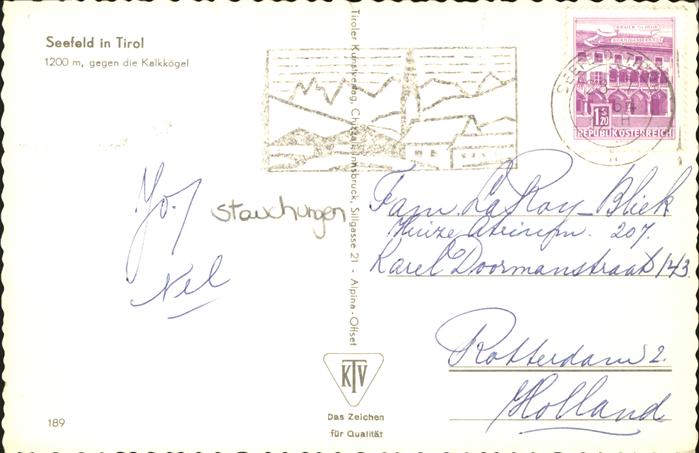 Seefeld in Tirol
1200 m, gegen die Kalkkögel
Jo /
Nel
stauchungen
Tiroler Kunstverlag, Chizzali, Innsbruck, Sillgasse 21 - Alpina-Offset
KTV
Das Zeichen
für Qualität
189
1.70
REPUBLIK ÖSTERREICH
SEEFELD
64
Fam. LaRoy-Bliek
Huize Atrium. 207.
Karel Doormanstraat 143
Rotterdam 2.
Holland